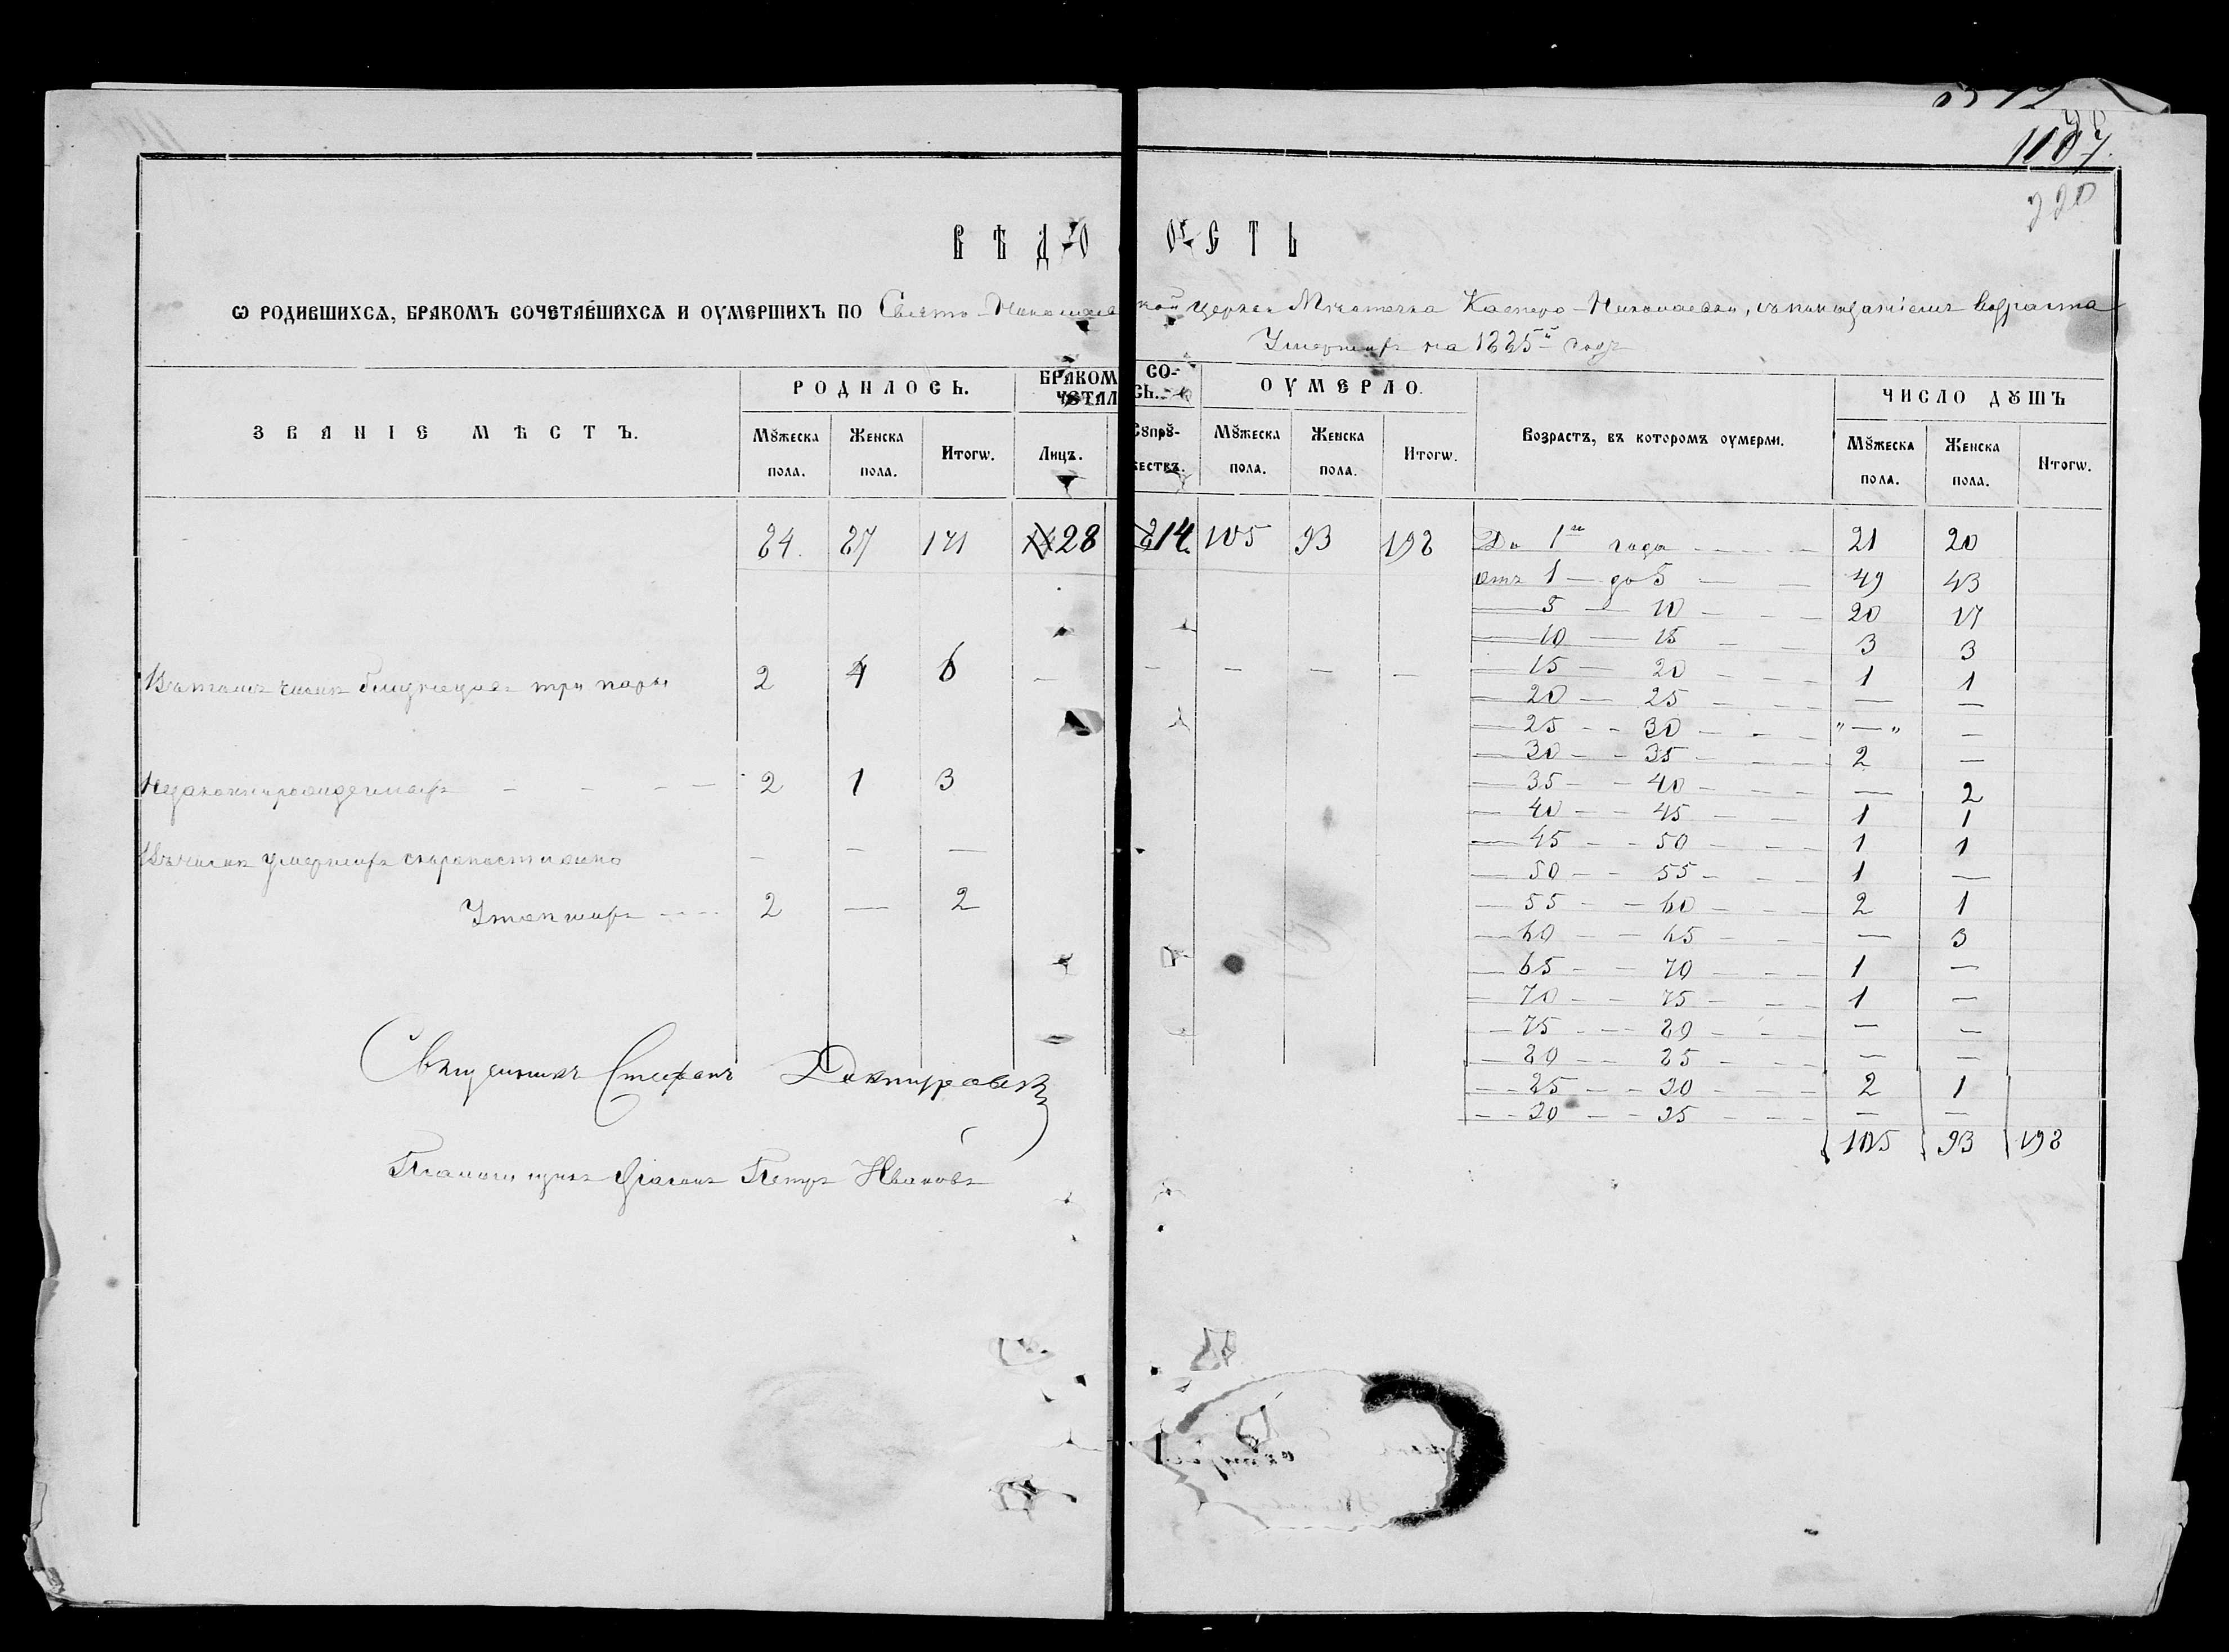 1107.
220
ВѢДО ОСТЬ
Ѡ РОДИВШИХСѦ, БРАКОМЪ СОЧЕТАВШИХСѦ И ОУМЕРШИХЪ ПО Свято-Николаев ской церкви Мѣстечка Касперо-Николаевки, съ показаніемъ возраста
Умершихъ на 1885й годъ
ЗВАНІЕ МѢСТЪ. РОДИЛОСЬ. БРАКОМ СО- ЧЕТАЛ СЬ. ОУМЕРЛО. Возрастъ, въ которомъ оумерли. ЧИСЛО ДꙊШЪ
Мꙋжеска пола. Женска пола. Итогѡ. Лицъ. Сꙋпрꙋ- жествъ. Мꙋжеска пола. Женска пола. Итогѡ. Мꙋжеска пола. Женска пола. Итогѡ.
84. 87 171 28 14. 105 93 198 До 1го года 21 20
отъ 1 — до 5 — 49 43
5 — 10 — 20 17
10 — 15 — 3 3
15 — 20 — 1 1
20 — 25 — — —
25 — 30 — „—„ —
30 — 35 — 2 —
35 — 40 — — 2
40 — 45 — 1 1
45 — 50 — 1 1
50 — 55 — 1 —
55 — 60 — 2 1
60 — 65 — — 3
65 — 70 — 1 —
70 — 75 — 1 —
75 — 80 — — —
80 — 85 — — —
85 — 90 — 2 1
90 — 95 — — —
105 93 198
Въ томъ числѣ близнецовъ три пары 2 4 6 — — — — —
Незаконнорожденныхъ — 2 1 3
Въ числѣ умершихъ скоропостижно — — —
Утопшихъ 2 — 2
Священникъ Стефанъ
Діаконъ Петръ Ивановъ